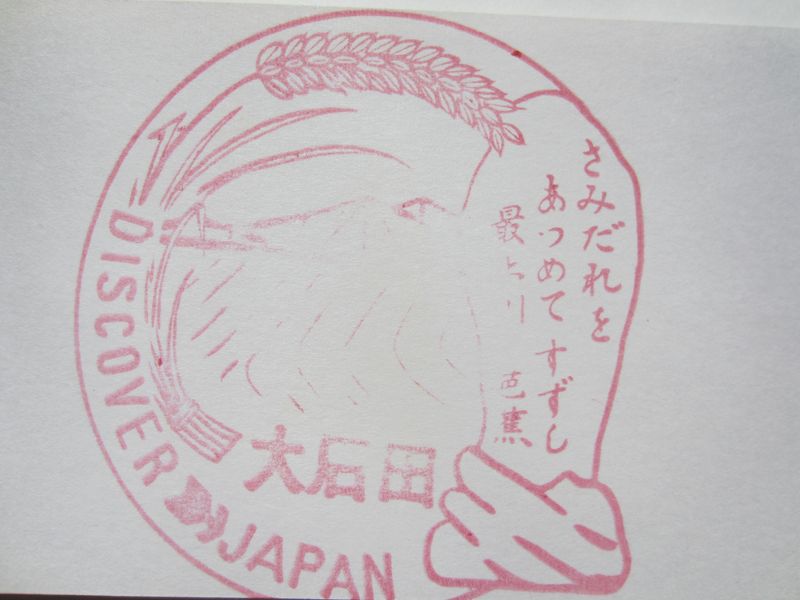 さみだれを
あつめてすずし
最上川 芭蕉
大石田
DISCOVER JAPAN